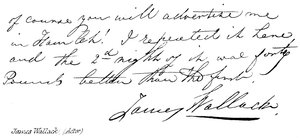 of course you will advertise me
in Hamlet! I repeated it here,
and the 2nd night of it was forty
Pounds better than the first
James Wallack
James Wallack (Actor)